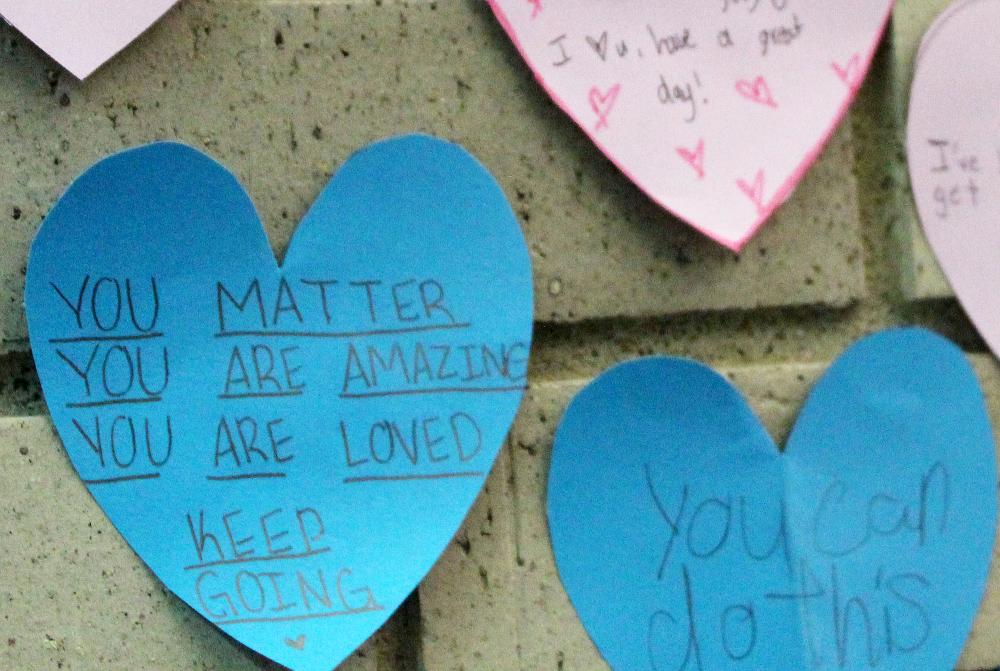 I ♥ u, have a great
day!
I've
get
YOU MATTER
YOU ARE AMAZING
YOU ARE LOVED
KEEP
GOING
You can
do this